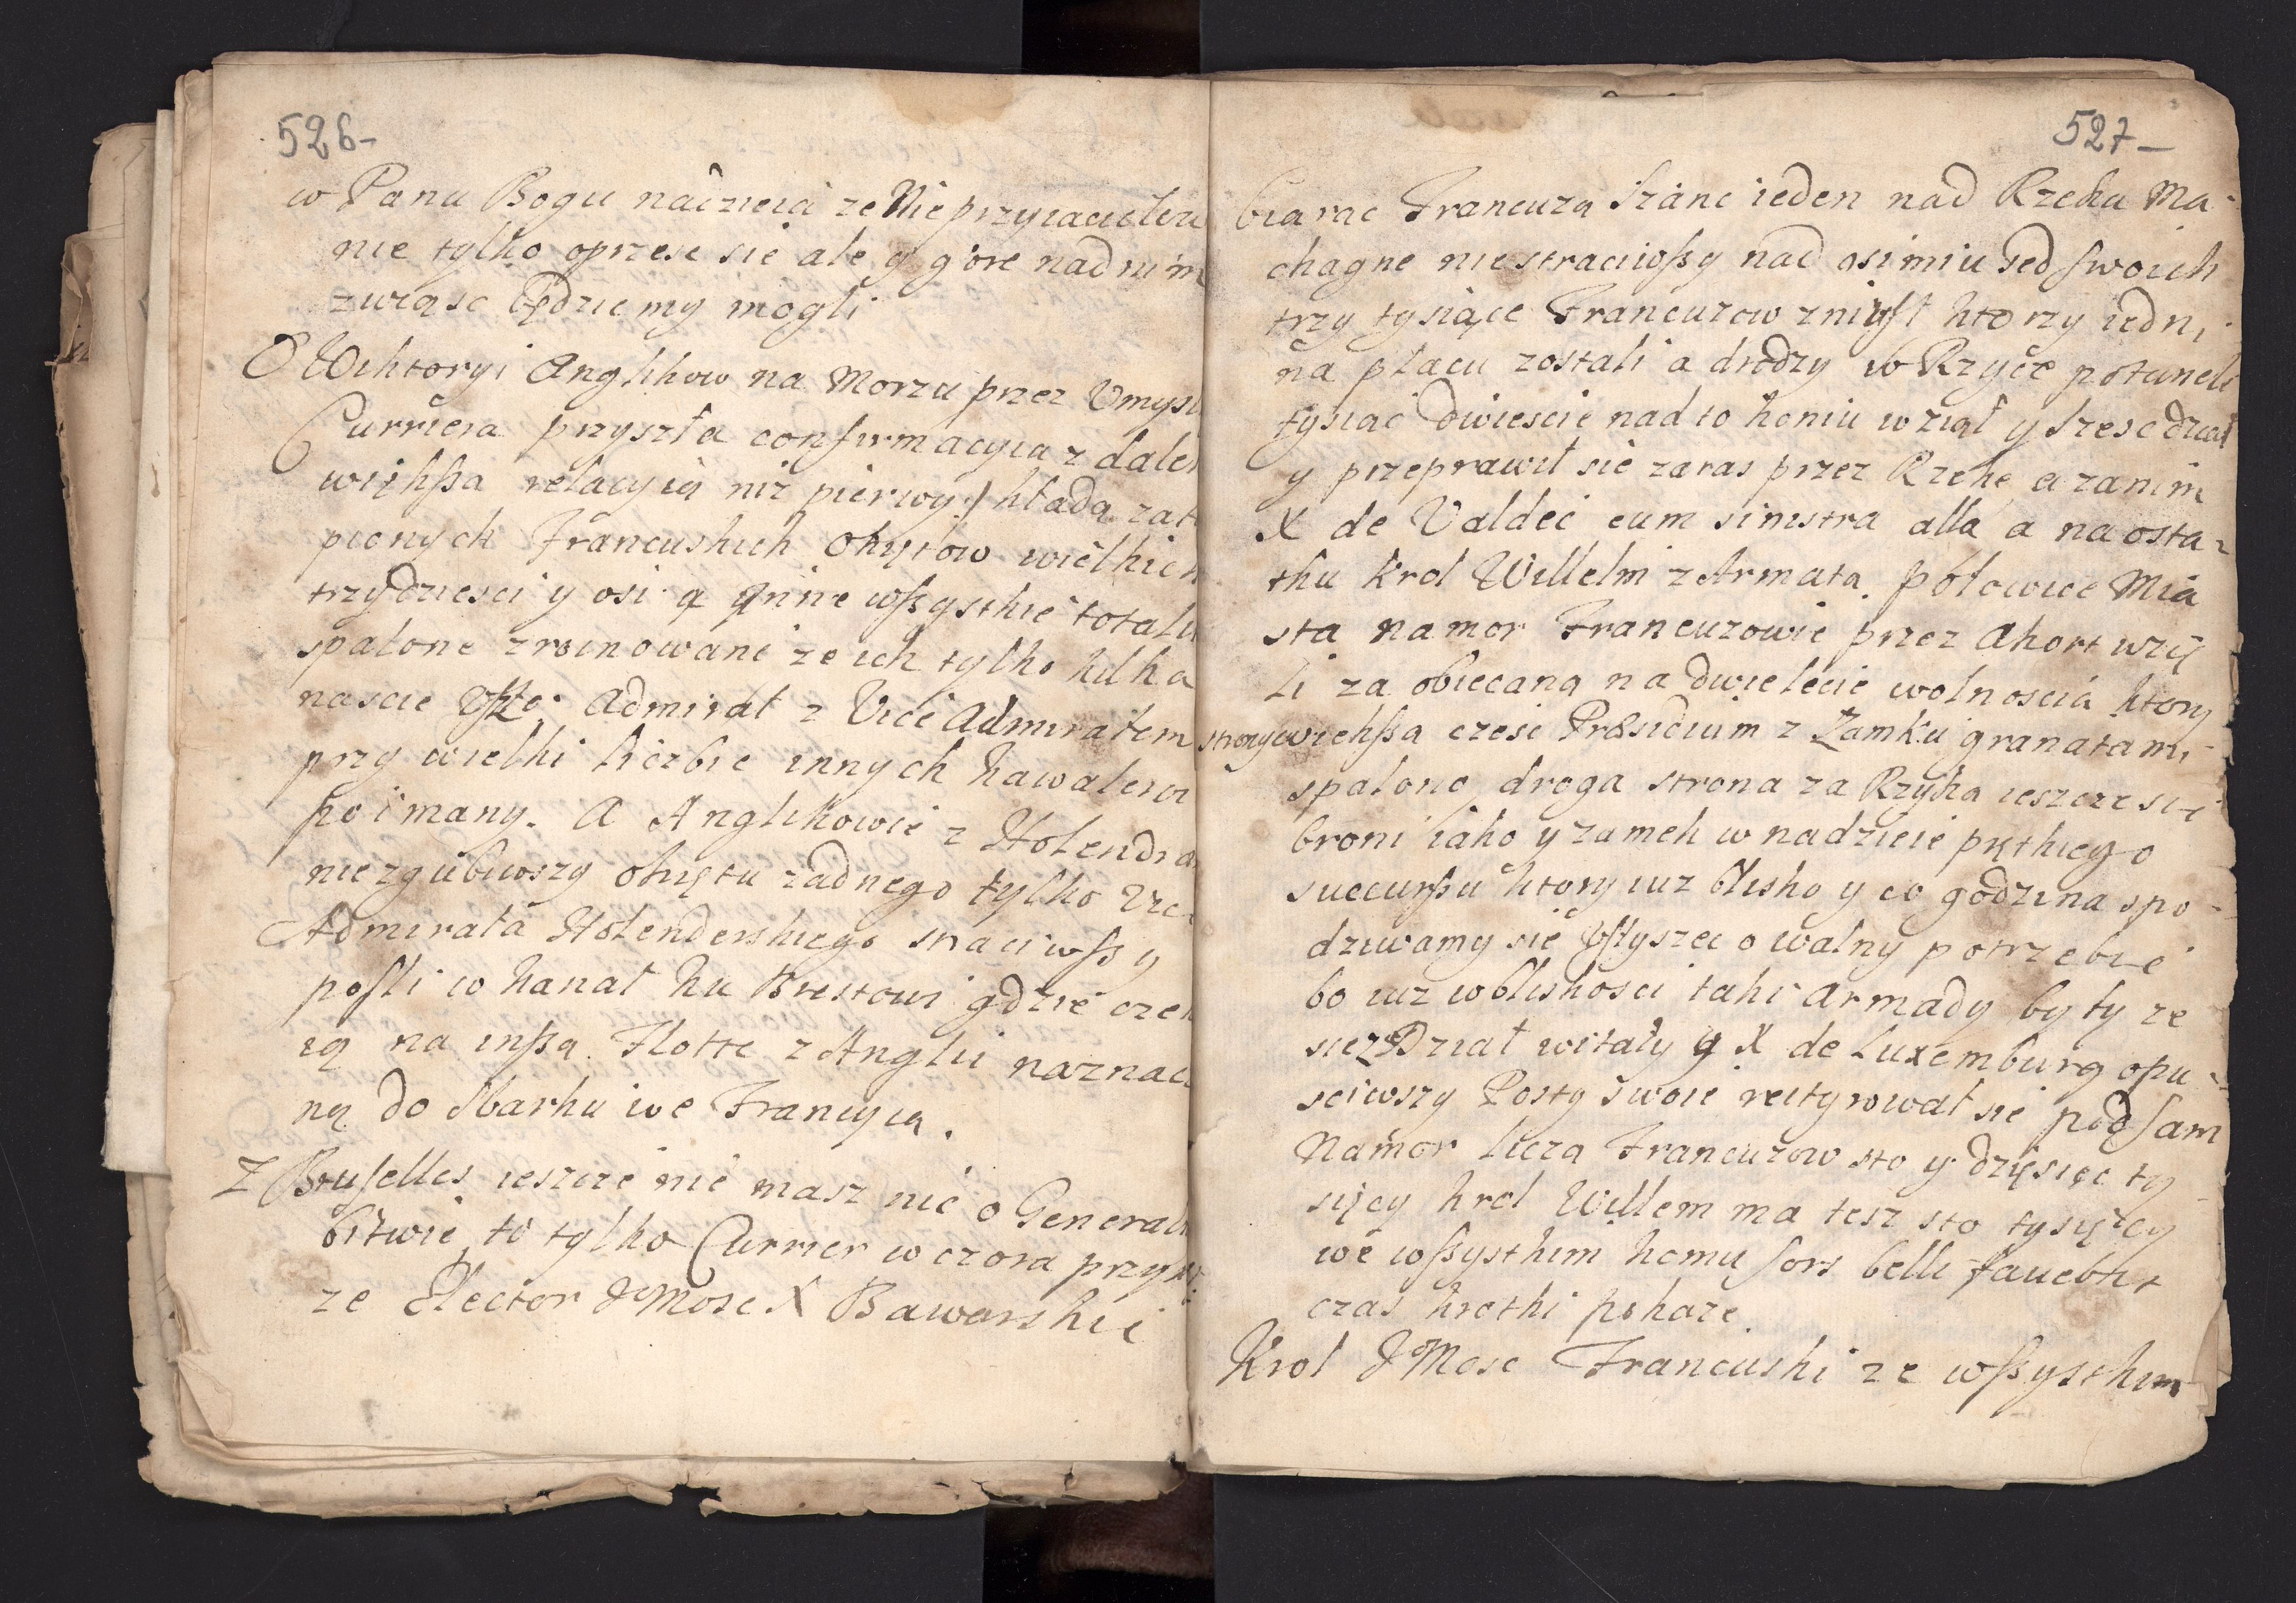 526-
w Panu Bogu nadzieia ze Nieprzyiacielow
nie tylko oprzesc sie ale y gore nad nim
zwiąsc będziemy mogli
O Wiktoryi Anglikow na Morzu przez Umysl
Curriera przyszła confirmacyia z dales
większa relacyią niz pierwy / kładą zato
pionych Francuskich Okrętow wielkich
trzydziesci y osi ą ynne wszystkie totali
spalone zruinowane ze ich tylko kilka
nascie Admirał z Vice Admirałem
przy wielki liczbie innych kawalerow
poimany. A Anglikowie z Holendra
niezgubiwszy okrętu żadnego tylko Vice
Admirała Holenderskiego straciwszy
poszli w kanał ku Brestowi gdzie czek
ią na inszą Flotte z Anglii naznac
ną do Sbarku we Francyią.
Z Bruselles ieszcze nie masz nic o General
bitwie to tylko Currier wczora przy
ze Elector JMosc X Bawarski i
527-
biarac Francuza Szanc ieden nad Rzeka Ma-
chagne niestraciwszy nad osimiu sed swoich
trzy tysiące Francuzow zniusł ktorzy iedni
na placu zostali a drodzy w Rzyce potuneli
tysiąc dwiescie nad to koniu wziął y szesc dział
y przeprawił sie zaras przez Rzeke a zanim
X de Valdec cum sinistra alla a na osta-
tku Krol Willelm z Armatą. połowice Mia
sta namor Francuzowie przez Akort wzię
li za obiecaną na dwie lecie wolnoscia ktory
strony wieksza czesc Præsidium z Zamku granatami
spalono, droga strona za Rzyką ieszcze się
broni iako y zamek w nadzieie prętkiego
succursu ktory iuz blisko y co godzina spo-
dziwamy sie usłyszec o walny potrzebie
bo iuz w bliskosci taki armady były ze
sie z Dział witały ą X de Luxemburg opu-
sciwszy Posty swoie reityrował sie pod sam
Namor licza Francuzow sto y dziesięc ty-
sięcy krol Willem ma tesz sto tysięcy
we wszystkim komu sors belli fauebit
czas krotki pokaze.
Krol JMosc Francuski ze wszystkim